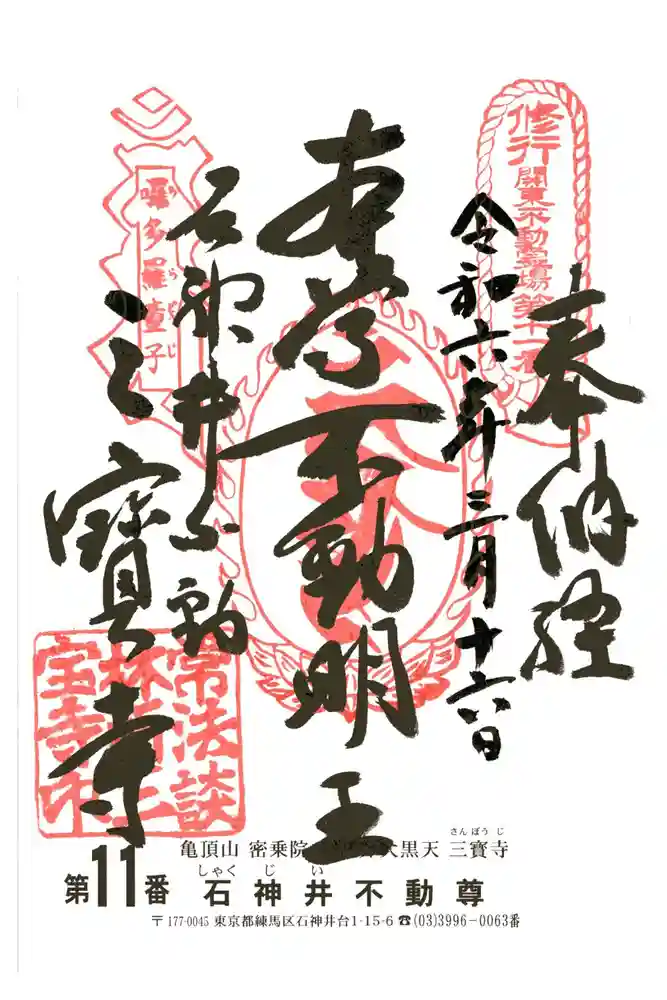 奉納経
修行
關東不動霊場第十一番
令和六年三月十六日
本尊不動明王
石神井不動
三寶寺
多羅童子
常法談
林所三
宝寺印
亀頂山 密乗院 大黒天 三寶寺
さんぽうじ
第11番 石神井不動尊
しゃくじい
〒177-0045 東京都練馬区石神井台1-15-6 ☎(03)3996-0063番